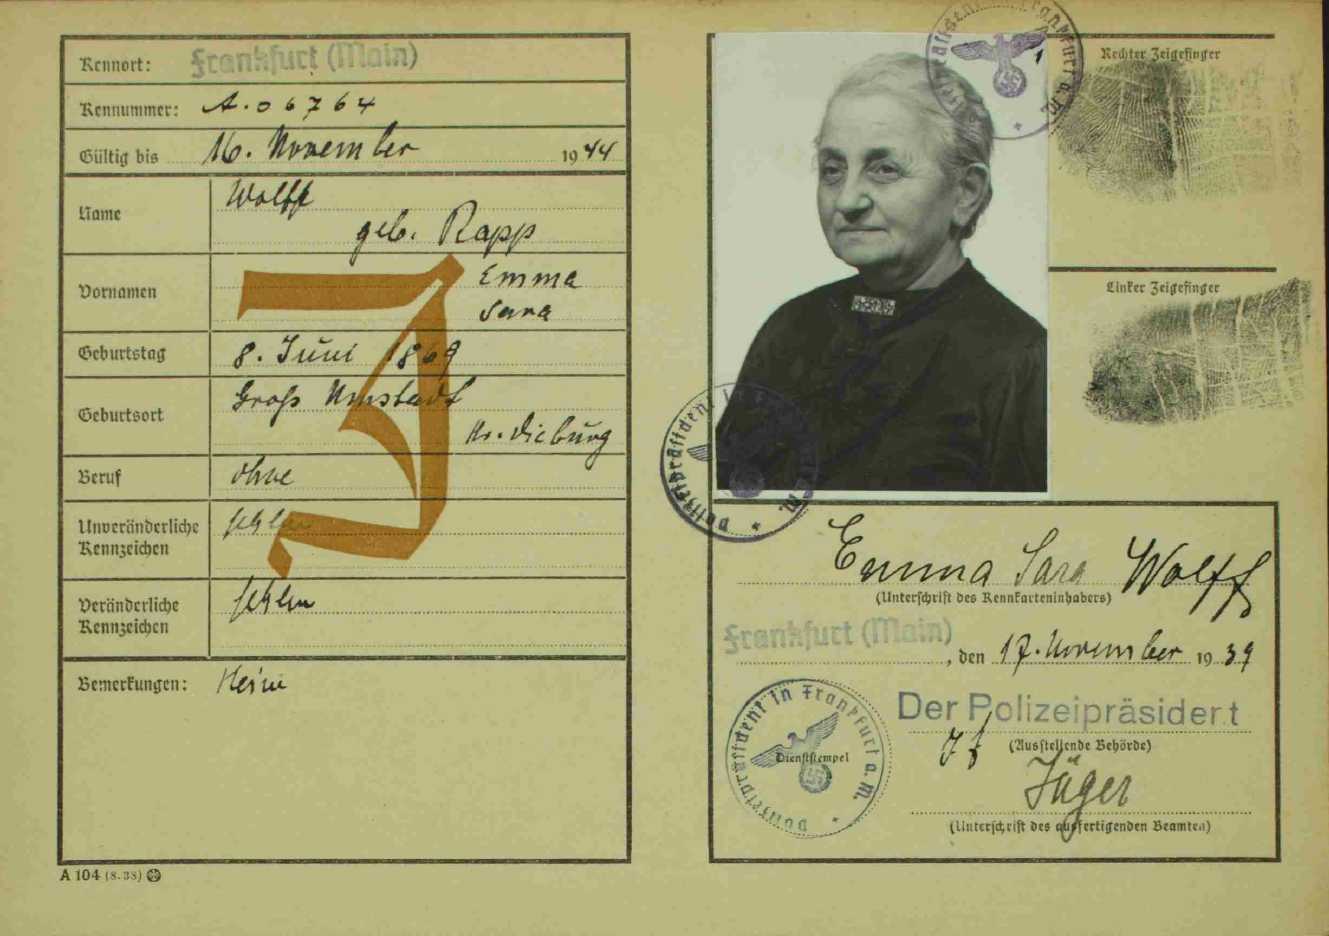 Kennort: Frankfurt (Main)
Kennummer: A.06764
Gültig bis 16. November 1944
Name Wolff
geb. Rapp
Vornamen Emma
Sara
Geburtstag 8. Juni 1869
Geburtsort Groß Umstadt
Kr. Dieburg
Beruf ohne
Unveränderliche Kennzeichen fehlen
Veränderliche Kennzeichen fehlen
Bemerkungen: Keine
J
A 104 (8. 38)
Rechter Zeigefinger
Linker Zeigefinger
Polizeipräsident in Frankfurt a. M.
Polizeipräsident in Frankfurt a. M.
Emma Sara Wolff
(Unterschrift des Kennkarteninhabers)
Frankfurt (Main), den 17. November 1939
Der Polizeipräsident
(Ausstellende Behörde)
Jäger
(Unterschrift des ausfertigenden Beamten)
Polizeipräsident in Frankfurt a. M.
Dienststempel